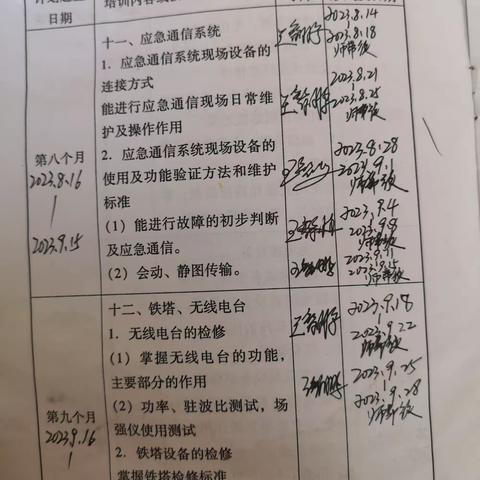 日期
十一、应急通信系统
1. 应急通信系统现场设备的
连接方式
能进行应急通信现场日常维
护及操作作用
2. 应急通信系统现场设备的
使用及功能验证方法和维护
标准
(1) 能进行故障的初步判断
及应急通信。
(2) 会动、静图传输。
第八个月
2023.8.16
2023.9.15
2023.8.14
2023.8.18
师带徒
2023.8.21
2023.8.25
师带徒
2023.8.28
2023.9.1
师带徒
2023.9.4
2023.9.8
师带徒
2023.9.11
2023.9.15
师带徒
十二、铁塔、无线电台
1. 无线电台的检修
(1) 掌握无线电台的功能,
主要部分的作用
(2) 功率、驻波比测试，场
强仪使用测试
2. 铁塔设备的检修
掌握铁塔检修标准
第九个月
2023.9.16
2023.9.18
2023.9.22
2023.9.25
2023.9.28
师带徒